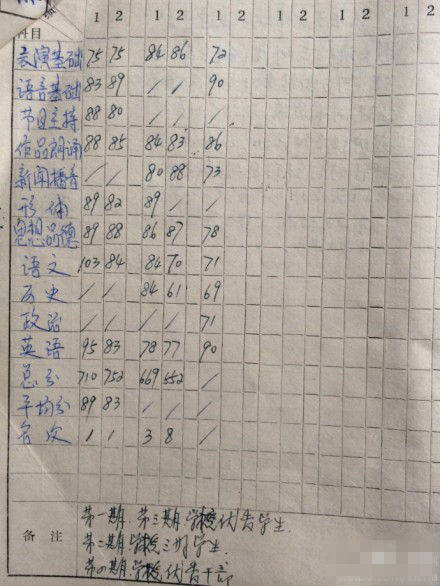 1 2 1 2 1 2 1 2 1 2 1 2
科目
表演基础 75 75 84 86 72
语言基础 83 89 / / 90
节目主持 88 80 / / /
作品朗诵 88 85 84 83 86
新闻播音 / / 80 88 73
形体 89 82 89 / /
思想品德 89 88 86 87 78
语文 103 84 84 70 71
历史 / / 84 61 69
政治 / / / / 71
英语 95 83 78 77 90
总分 710 752 669 552 /
平均分 89 83 / / /
名次 1 1 3 8 /
备注
第一期.第三期.学校优秀学生.
第二期学校三好学生.
第四期.学校优秀干部